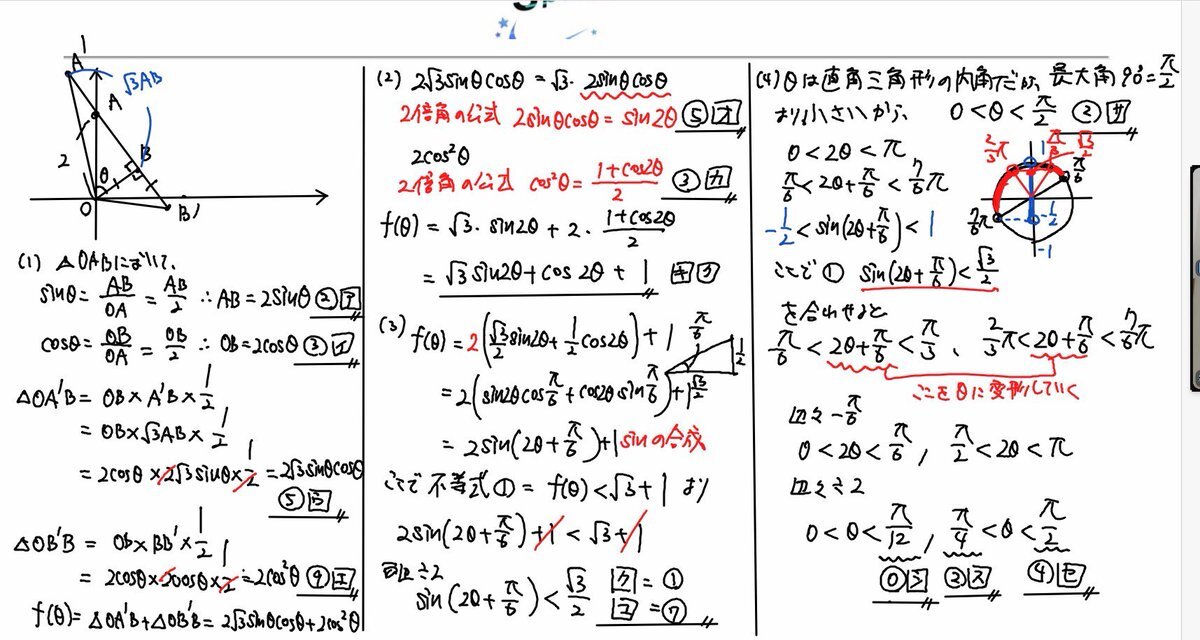 A'
√3AB
A
B
2
θ
O
B'
(1) △OABにおいて、
sinθ = AB/OA = AB/2 ∴ AB = 2sinθ ②ア
cosθ = OB/OA = OB/2 ∴ OB = 2cosθ ③イ
△OA'B = OB × A'B × 1/2
= OB × √3AB × 1/2
= 2cosθ × 2√3sinθ × 1/2 = 2√3sinθcosθ
⑤ウ
△OB'B = OB × BB' × 1/2
= 2cosθ × 2cosθ × 1/2 = 2cos²θ ④エ
f(θ) = △OA'B + △OB'B = 2√3sinθcosθ + 2cos²θ
(2) 2√3sinθcosθ = √3・2sinθcosθ
2倍角の公式 2sinθcosθ = sin2θ ⑤オ
2cos²θ
2倍角の公式 cos²θ = (1+cos2θ)/2 ③カ
f(θ) = √3・sin2θ + 2・(1+cos2θ)/2
= √3sin2θ + cos2θ + 1 キク
(3) f(θ) = 2(√3/2 sin2θ + 1/2 cos2θ) + 1
π/6
1
1/2
√3/2
= 2(sin2θcosπ/6 + cos2θsinπ/6) + 1
= 2sin(2θ+π/6) + 1 sinの合成
ここで不等式① = f(θ) < √3 + 1 より
2sin(2θ+π/6) + 1 < √3 + 1
両辺÷2
sin(2θ+π/6) < √3/2 ケ = ①
コ = ⑦
(4) θは直角三角形の内角だから 最大角90° = π/2
より小さいから 0 < θ < π/2 ②サ
0 < 2θ < π
π/6 < 2θ+π/6 < 7/6π
-1/2 < sin(2θ+π/6) < 1
2/3π
1
π/3
√3/2
π/6
7/6π
-1/2
-1
ここで① sin(2θ+π/6) < √3/2
を合わせると
π/6 < 2θ+π/6 < π/3、 2/3π < 2θ+π/6 < 7/6π
ここをθに変形していく
辺々-π/6
0 < 2θ < π/6, π/2 < 2θ < π
辺々÷2
0 < θ < π/12, π/4 < θ < π/2
⓪シ ③ス ④セ